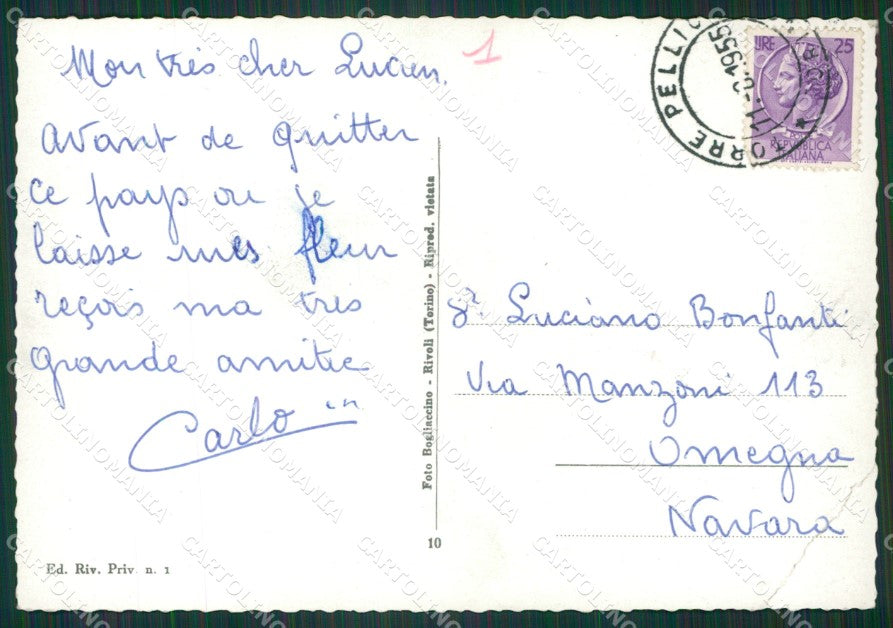 Mon très cher Lucien.
avant de quitter
ce pays ou je
laisse mes fleur
reçois ma très
grande amitie
Carlo
1
TORRE PELLICE
11.1955
LIRE 25
REPUBBLICA
ITALIANA
Sr. Luciano Bonfanti
Via Manzoni 113
Omegna
Navara
Foto Bogliaccino - Rivoli (Torino) - Riprod. vietata
10
Ed. Riv. Priv. n. 1
CARTOLINOMANIA